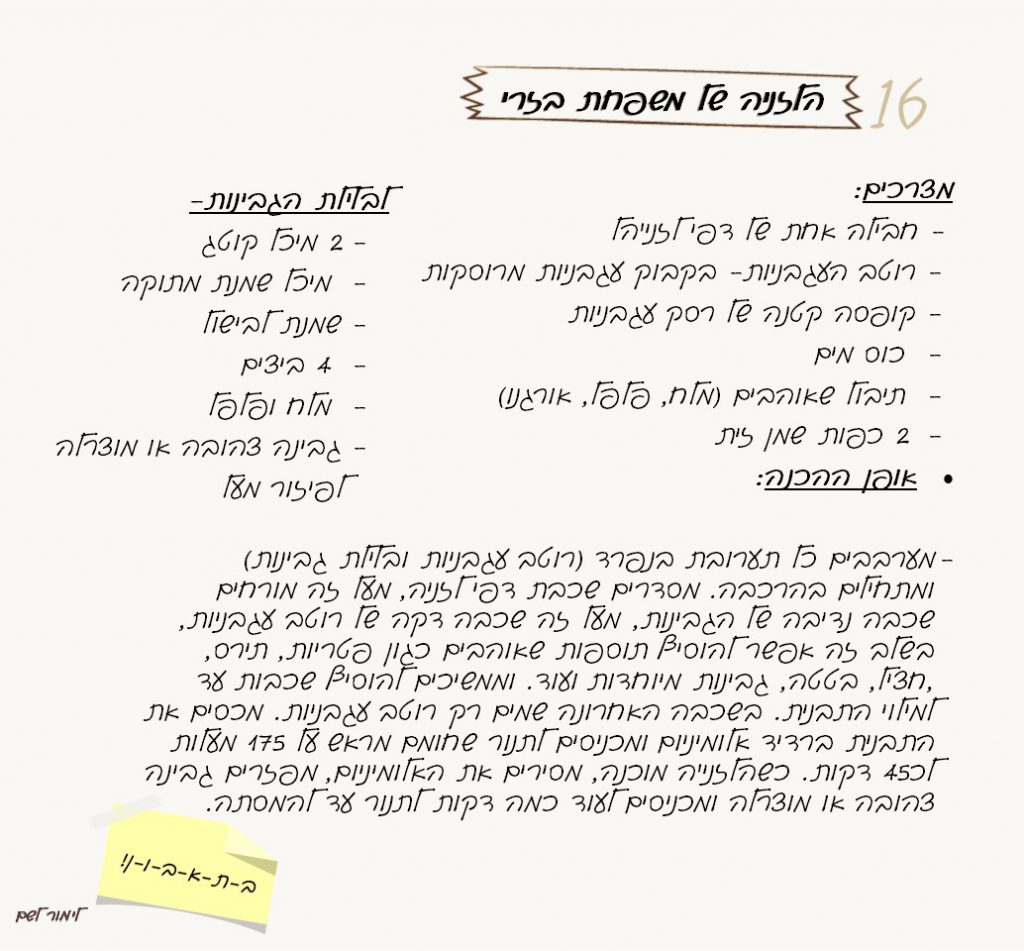 16
הלזניה של משפחת בזרי
מצרכים:
- חבילה אחת של דפי לזנייהל
- רוטב העגבניות- בקבוק עגבניות מרוסקות
- קופסה קטנה של רסק עגבניות
- כוס מים
- תיבול שאוהבים (מלח, פלפל, אורגנו)
- 2 כפות שמן זית
לבלילת הגבינות-
- 2 מיכל קוטג
- מיכל שמנת מתוקה
- שמנת לבישול
- 4 ביצים
- מלח ופלפל
- גבינה צהובה או מוצרלה
לפיזור מעל
• אופן ההכנה:
-מערבבים כל תערובת בנפרד (רוטב עגבניות ובלילת גבינות)
ומתחילים בהרכבה. מסדרים שכבת דפי לזניה, מעל זה מורחים
שכבה נדיבה של הגבינות, מעל זה שכבה דקה של רוטב עגבניות,
בשלב זה אפשר להוסיף תוספות שאוהבים כגון פטריות, תירס,
,חציל, בטטה, גבינות מיוחדות ועוד. וממשיכים להוסיף שכבות עד
למילוי התבנית. בשכבה האחרונה שמים רק רוטב עגבניות. מכסים את
התבנית ברדיד אלומיניום ומכניסים לתנור שחומם מראש על 175 מעלות
לכ45 דקות. כשהלזנייה מוכנה, מסירים את האלומיניום, מפזרים גבינה
צהובה או מוצרלה ומכניסים לעוד כמה דקות לתנור עד להמסתה.
ב-ת-א-ב-ו-ן!
לימור לשם